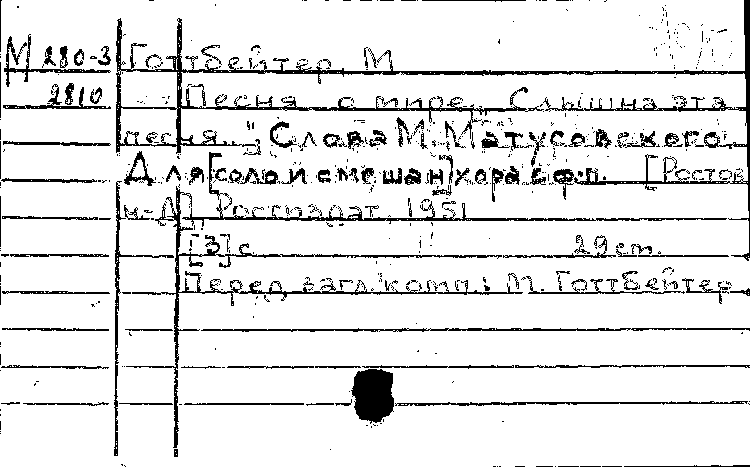 М 280-3 Готтбейтер, М
2810 Песня о мире „ Слышна эта
песня..." Слова М. Матусовского.
Для [соло и смешан] хора с ф-п. [Ростов
н-Д], Ростиздат, 1951
[3] с 29 ст.
Перед загл. комп.: М. Готтбейтер